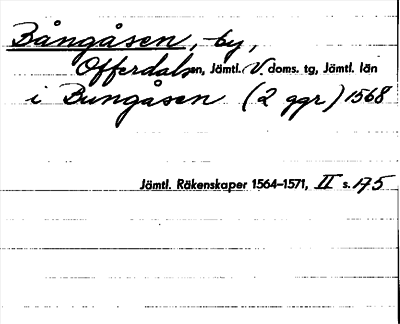 Bångåsen, by,
Offerdals sn, Jämtl. V. doms. tg, Jämtl. län
i Bungåsen (2 ggr) 1568
Jämtl. Räkenskaper 1564–1571, II s. 175